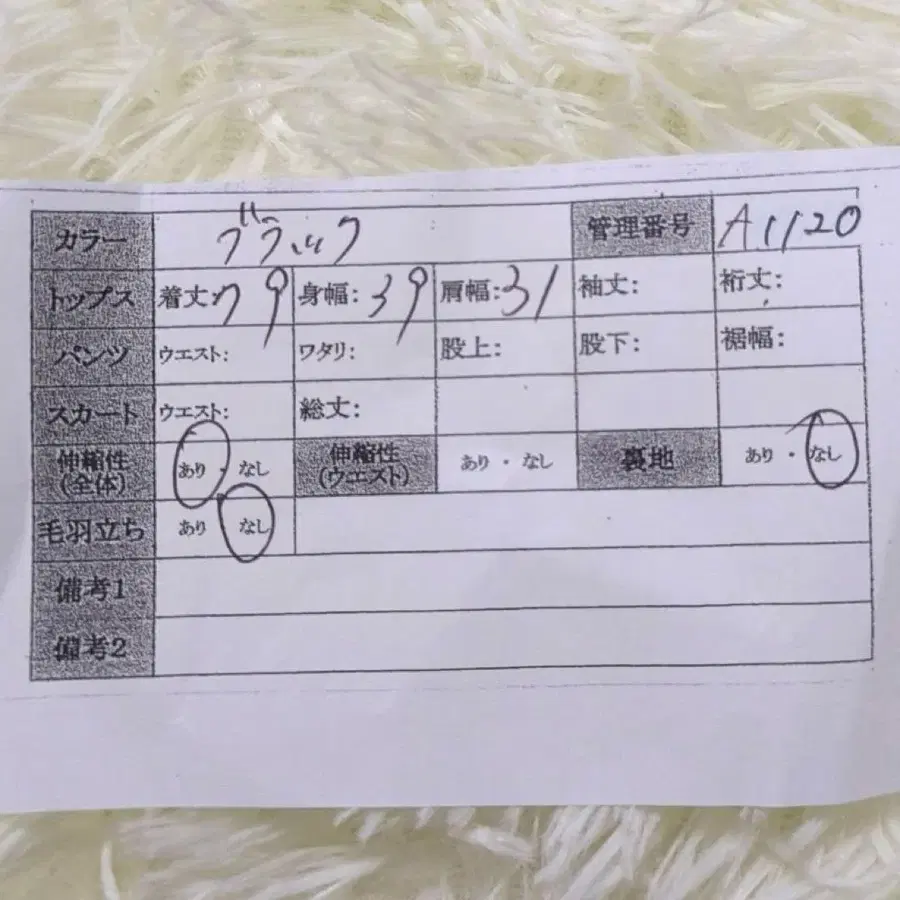 カラー ブラック 管理番号 A1120
トップス 着丈:79 身幅:39 肩幅:31 袖丈: 裄丈:
パンツ ウエスト: ワタリ: 股上: 股下: 裾幅:
スカート ウエスト: 総丈:
伸縮性(全体) あり・なし 伸縮性(ウエスト) あり・なし 裏地 あり・なし
毛羽立ち あり なし
備考1
備考2